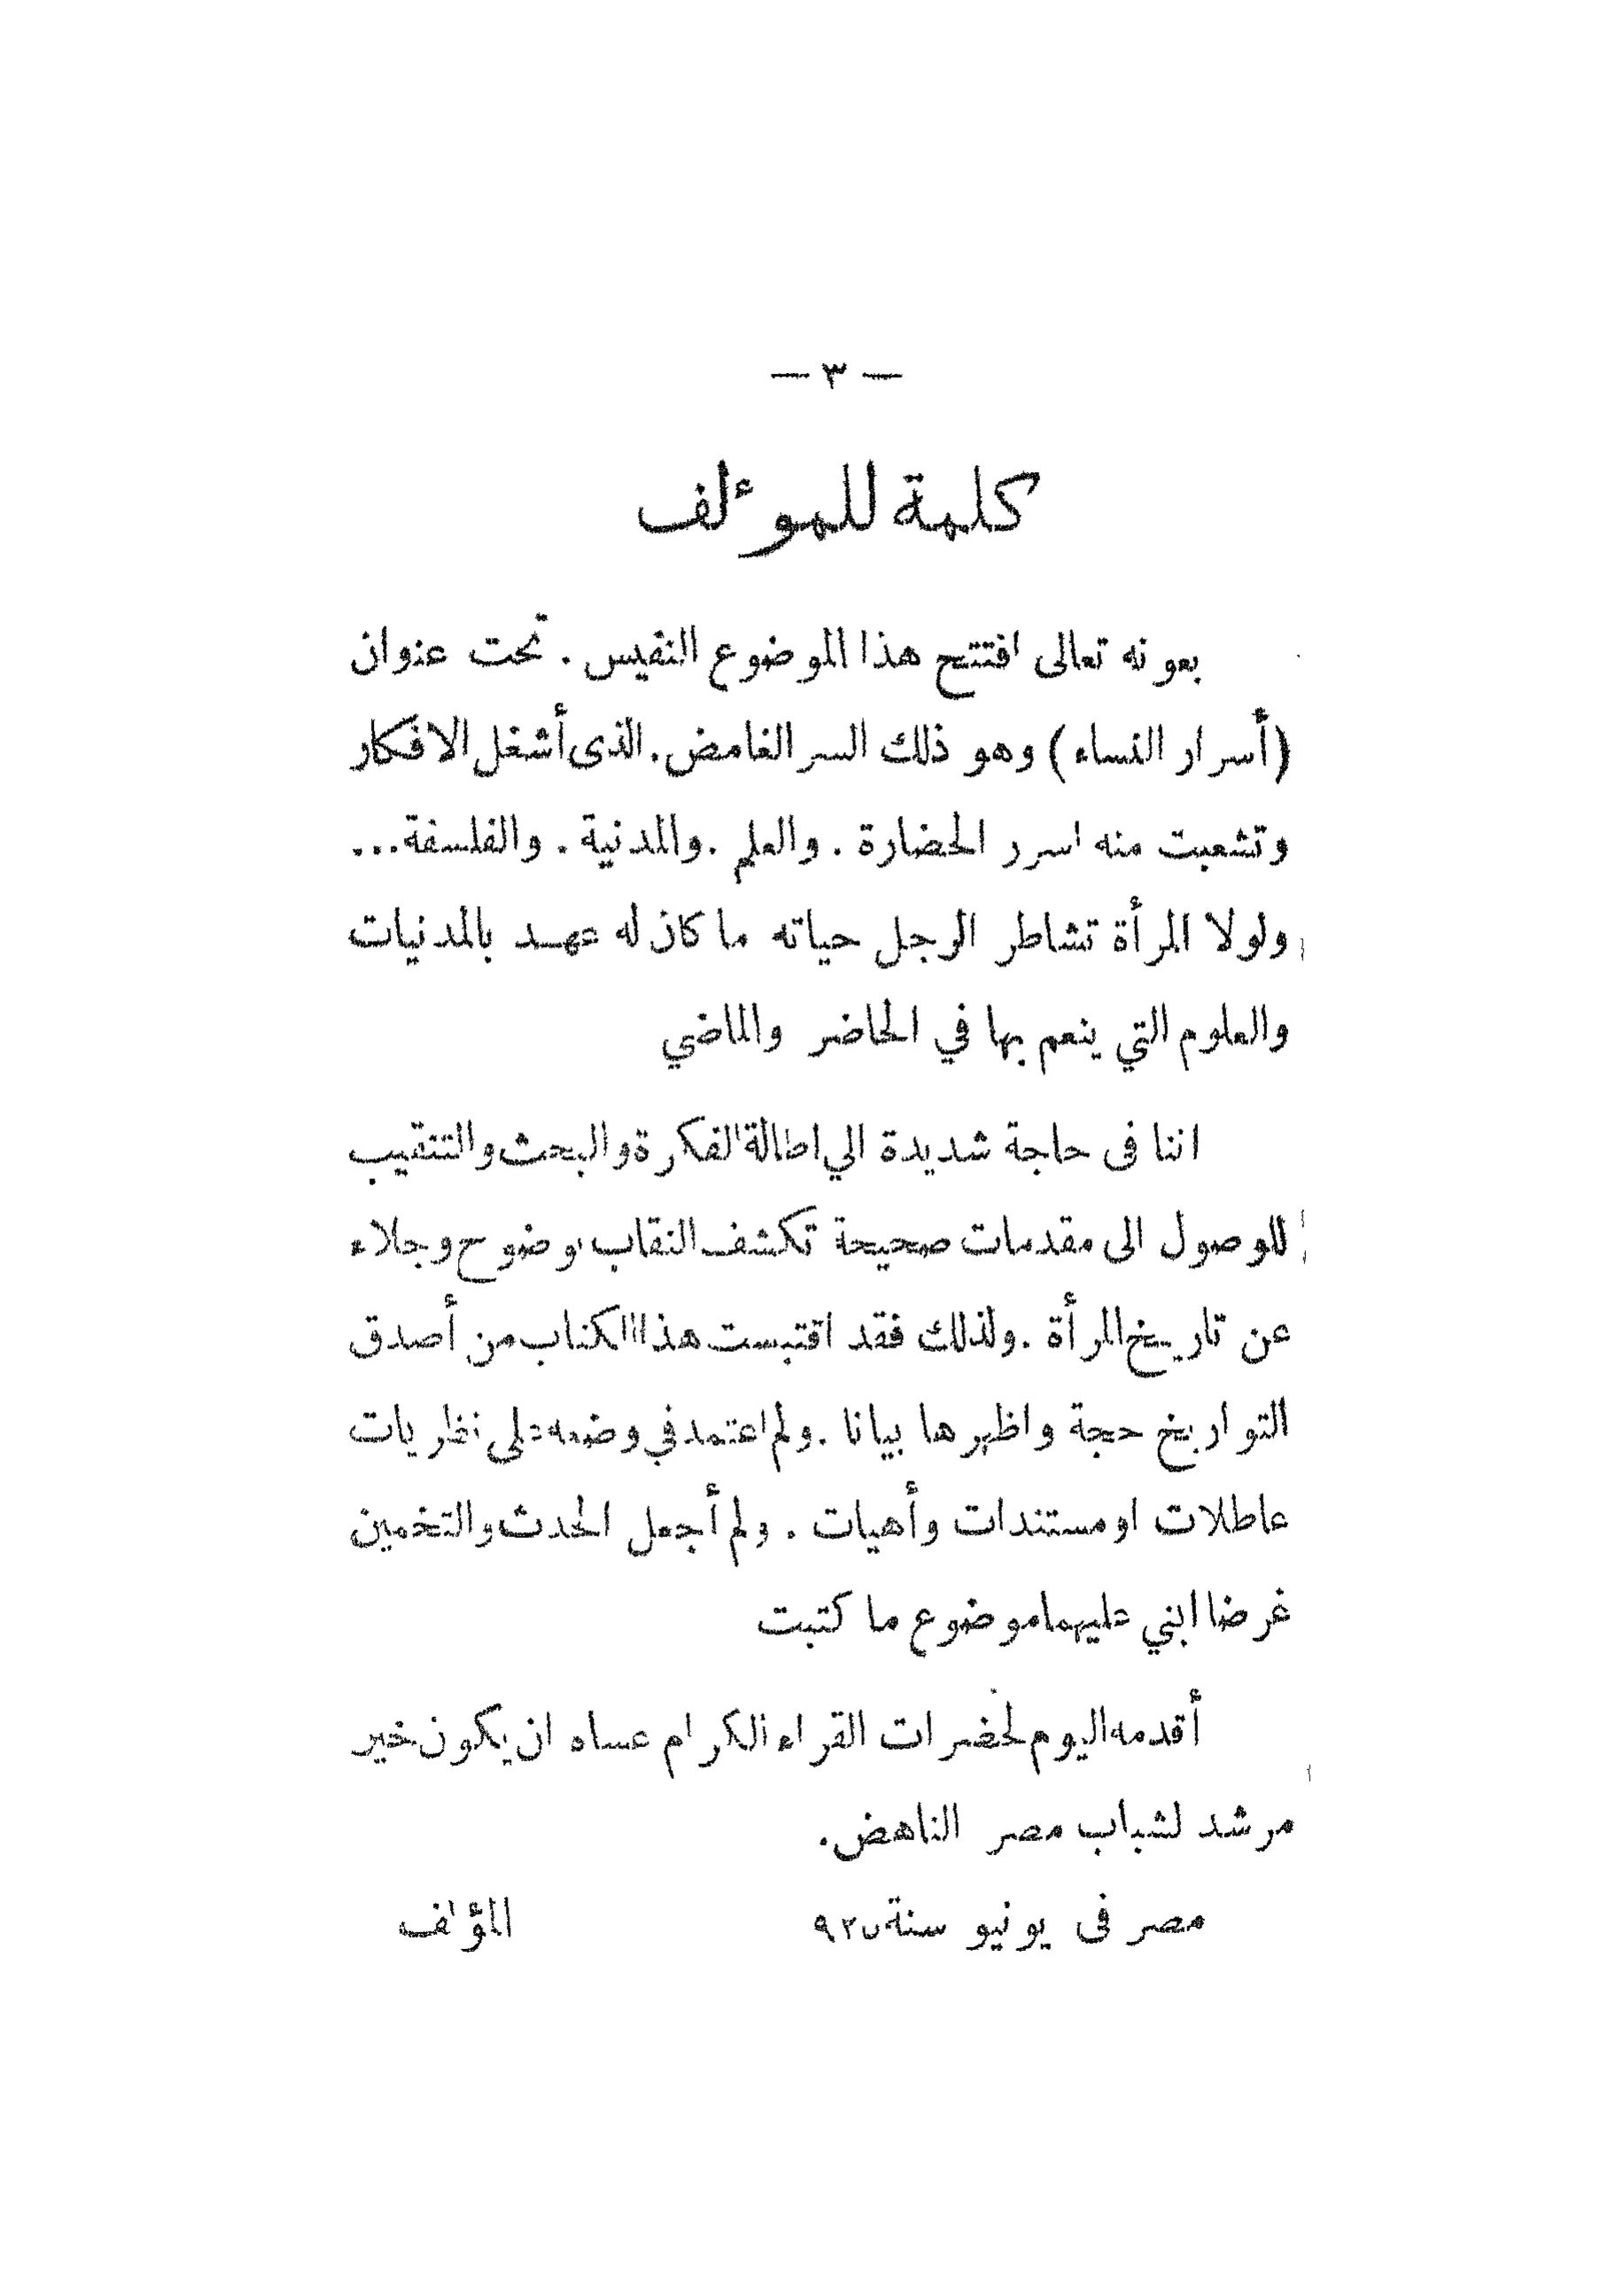 — ٣ —
كلمة للموٴلف
بعونه تعالى افتتح هذا الموضوع النفيس . تحت عنوان
(أسرار النساء) وهو ذلك السر الغامض. الذى أشغل الافكار
وتشعبت منه اسرر الحضارة . والعلم . والمدنية . والفلسفة...
ولولا المرأة تشاطر الرجل حياته ما كان له عهد بالمدنيات
والعلوم التي ينعم بها في الحاضر والماضي
اننا فى حاجة شديدة الي اطالة الفكرة والبحث والتنقيب
للوصول الى مقدمات صحيحة تكشف النقاب بوضوح وجلاء
عن تاريخ المرأة . ولذلك فقد اقتبست هذا الكتاب من أصدق
التواريخ حجة واظهرها بيانا . ولم اعتمد في وضعه على نظريات
عاطلات او مستندات وأهيات . ولم أجعل الحدث والتخمين
غرضا ابني عليهما موضوع ما كتبت
أقدمه اليوم لحضرات القراء الكرام عساه ان يكون خير
مرشد لشباب مصر الناهض.
مصر فى يونيو سنة ٩٢٥ المؤلف